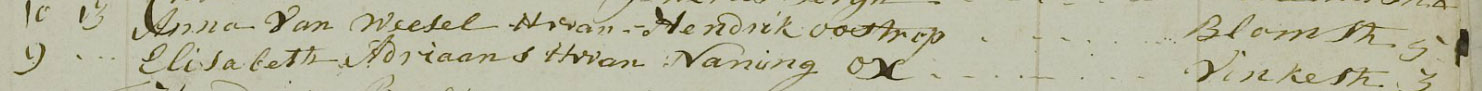 10 13 Anna Van Weesel Hvan Hendrik Oostrop Blomstr 5
9 Elisabeth Adriaans Hvan Naning Ox Vinkestr 3